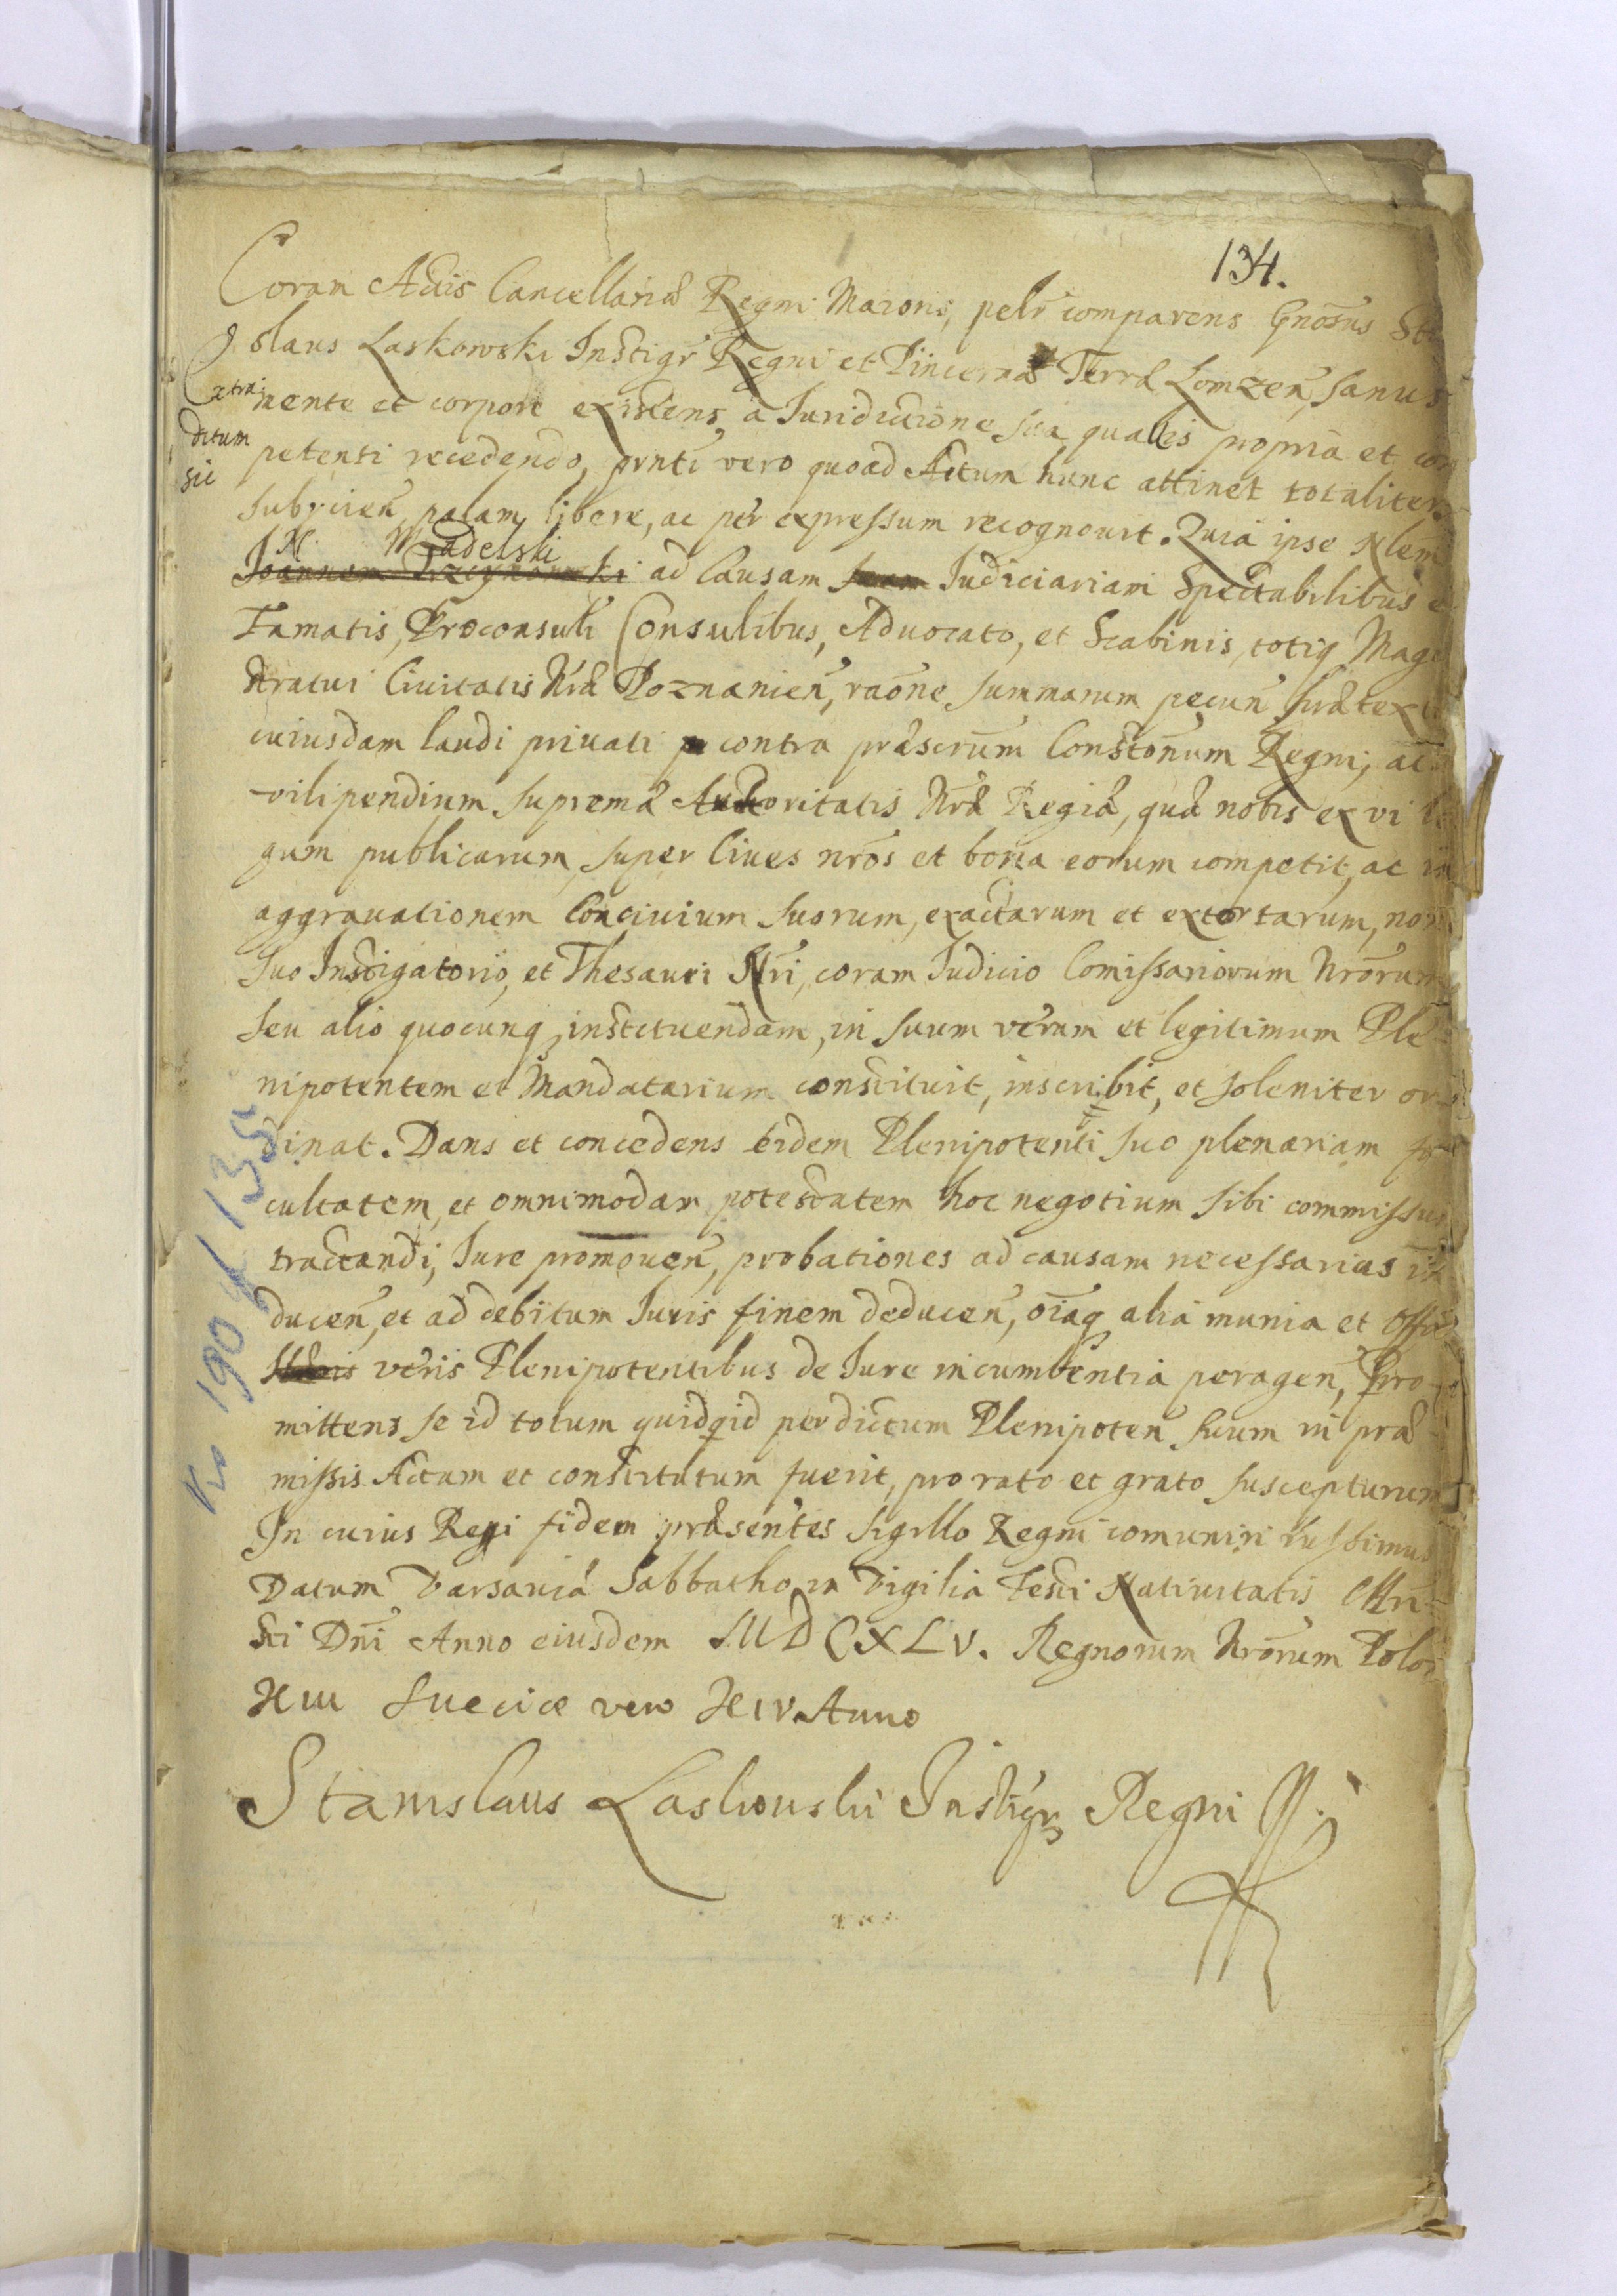 134.
Coram Actis Cancellariæ Regni Maioris, pelr comparens Gnosus St
islaus Laskowski Instigr Regni et Pincerna Terræ Lomzen, sanus
mente et corpore existens, a Iuridictione sua quavis propria et com
petenti recedendo, pnti vero quoad Actum hunc attinet totaliter
Extra
ditum
sic
subycien, palam, libere, ac per expressum recognouit. Quia ipse Nlem
N. Mądelski
Joannem ad Causam suam Iudiciariam Spectabilibus e
Famatis, Proconsuli Consulibus, Aduocato, et Scabinis, totiq Magi
stratui Ciuitatis Nræ Poznanien, raone summarum pecun sub textu
cuiusdam laudi priuati contra præscrum Constonum Regni, ac in
vilipendium supremæ Authoritatis Nræ Regiæ, quæ nobis ex vi le
gum publicarum, super Ciues nros et bona eorum competit, ac in
aggrauationem Conciuium suorum, exactarum et extortarum, noie
suo Instigatorio, et Thesauri Nri, coram Iudicio Comissariorum Nrorum
seu alio quocunq instituendam, in suum verum et legitimum Ple
nipotentem et Mandatarium constituit, inscribit, et soleniter or
dinat. Dans et concedens eidem Plenipotenti suo plenariam fa
cultatem, et omnimodam potestatem hoc negotium sibi commissum
tractandi, Iure promouen, probationes ad causam necessarias in
ducen, et ad debitum Iuris finem deducen, oiaq alia munia et Offi
veris Plenipotentibus de Iure incumbentia peragen, Pro
mittens se id totum quidqid per dictum Plenipoten suum in præ
missis Actum et constitutum fuerit, pro rato et grato suscepturum
In cuius Rei fidem præsentes sigillo Regni comuniri iussimus
Datum Varsauiæ Sabbatho in Vigilia Festi Natiuitatis Chri
sti Dni Anno eiusdem MDCXLV. Regnorum Nrorum Polon
XIII Sueciæ vero XIV Anno
Stanislaus Laskowski Instigr Regni
K. 190 d 135